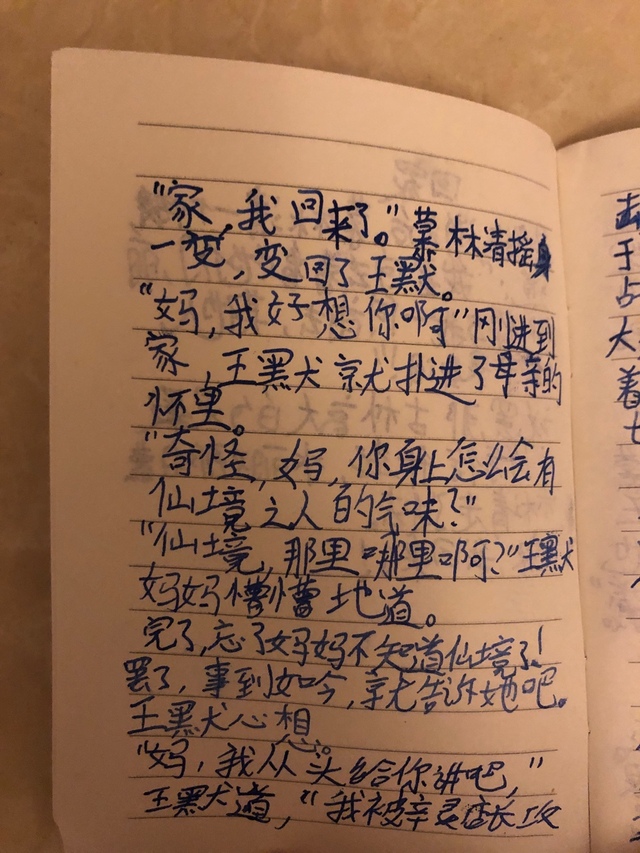 "家，我回来了。"慕林清摇身
一变，变回了王默犬。
"妈，我好想你啊"刚进到
家，王黑犬就扑进了母亲的
怀里。
"奇怪，妈，你身上怎么会有
仙境之人的气味？"
"仙境，那里哪里啊？"王默犬
妈妈懵懵地道。
完了，忘了妈妈不知道仙境了！
罢了，事到如今，就告诉她吧。
王黑犬心想。
"妈，我从头给你讲吧，"
王黑犬道，"我被辛灵店长攻
去
于
占
大
着